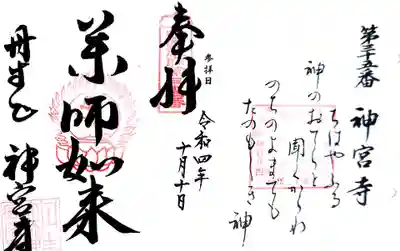 第三十五番 神宮寺
ちはやふる
神のおてらと聞くからハ
のちのよまでも
たのもしき神
奉拝
参拝日
令和四年
十月十日
薬師如来
丹生山 神宮寺